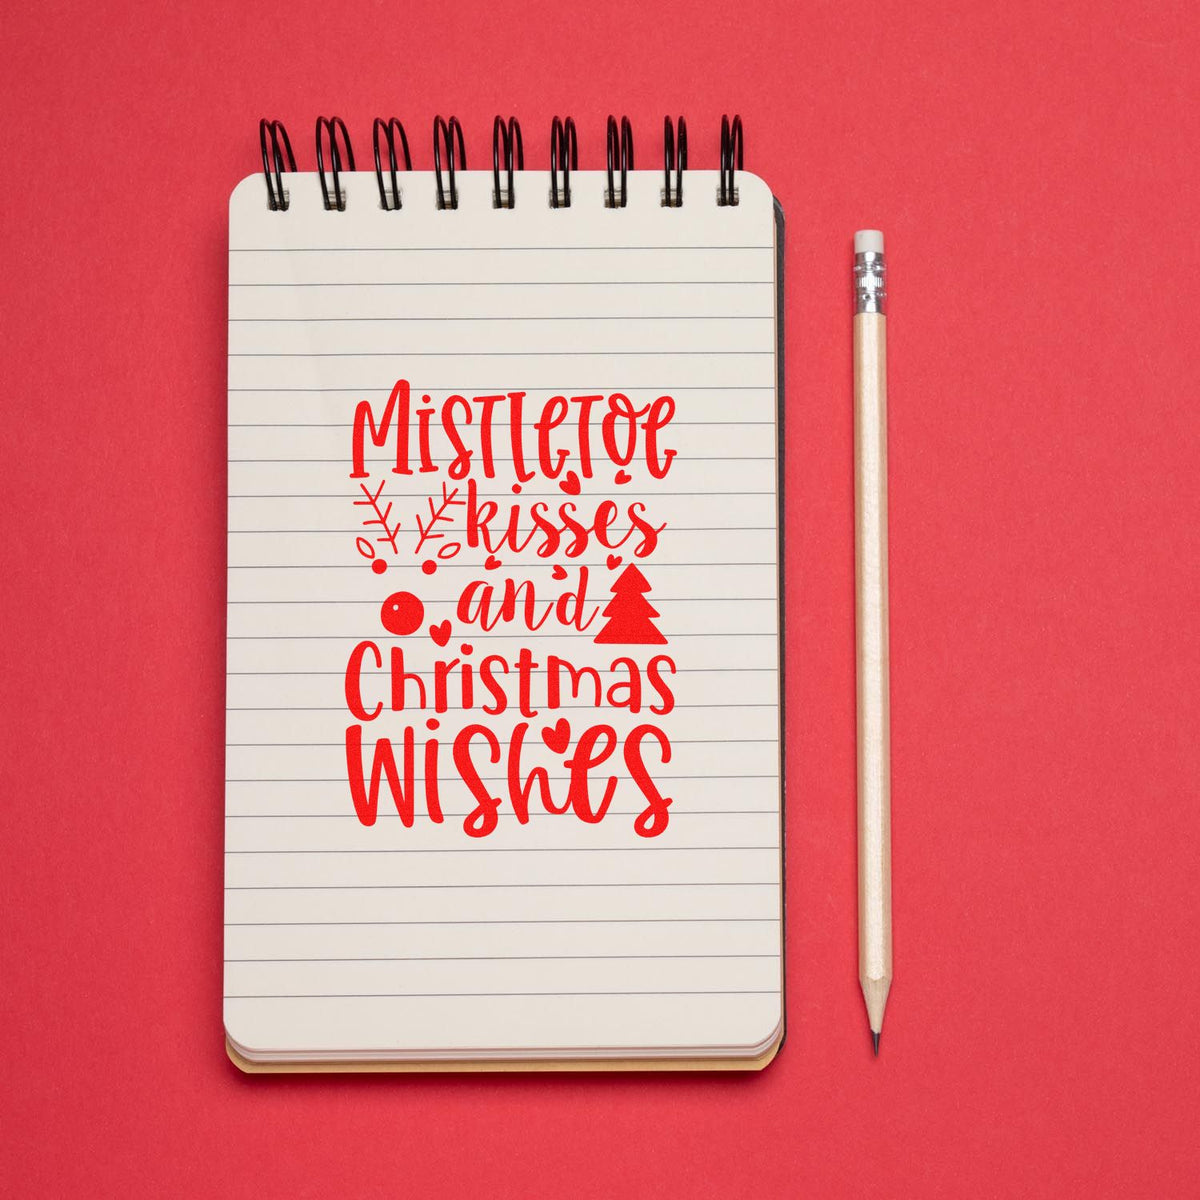 Mistletoe
kisses
and
Christmas
Wishes